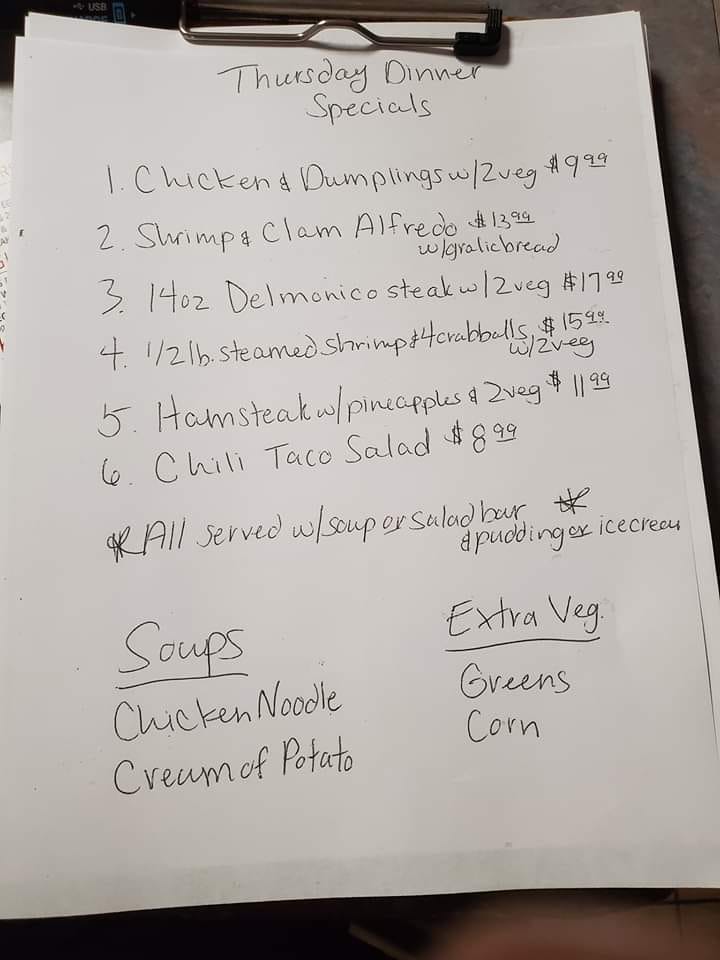 USB
Thursday Dinner
Specials
1. Chicken & Dumplings w/2veg $9.99
2. Shrimp & Clam Alfredo $13.99
w/gralic bread
3. 14oz Delmonico steak w/2veg $17.99
4. 1/2 lb. steamed shrimp & 4 crabballs $15.99
w/2veg
5. Hamsteak w/pineapples & 2veg $11.99
6. Chili Taco Salad $8.99
* All served w/soup or salad bar *
& pudding or icecream
Soups
Extra Veg.
Chicken Noodle
Greens
Cream of Potato
Corn